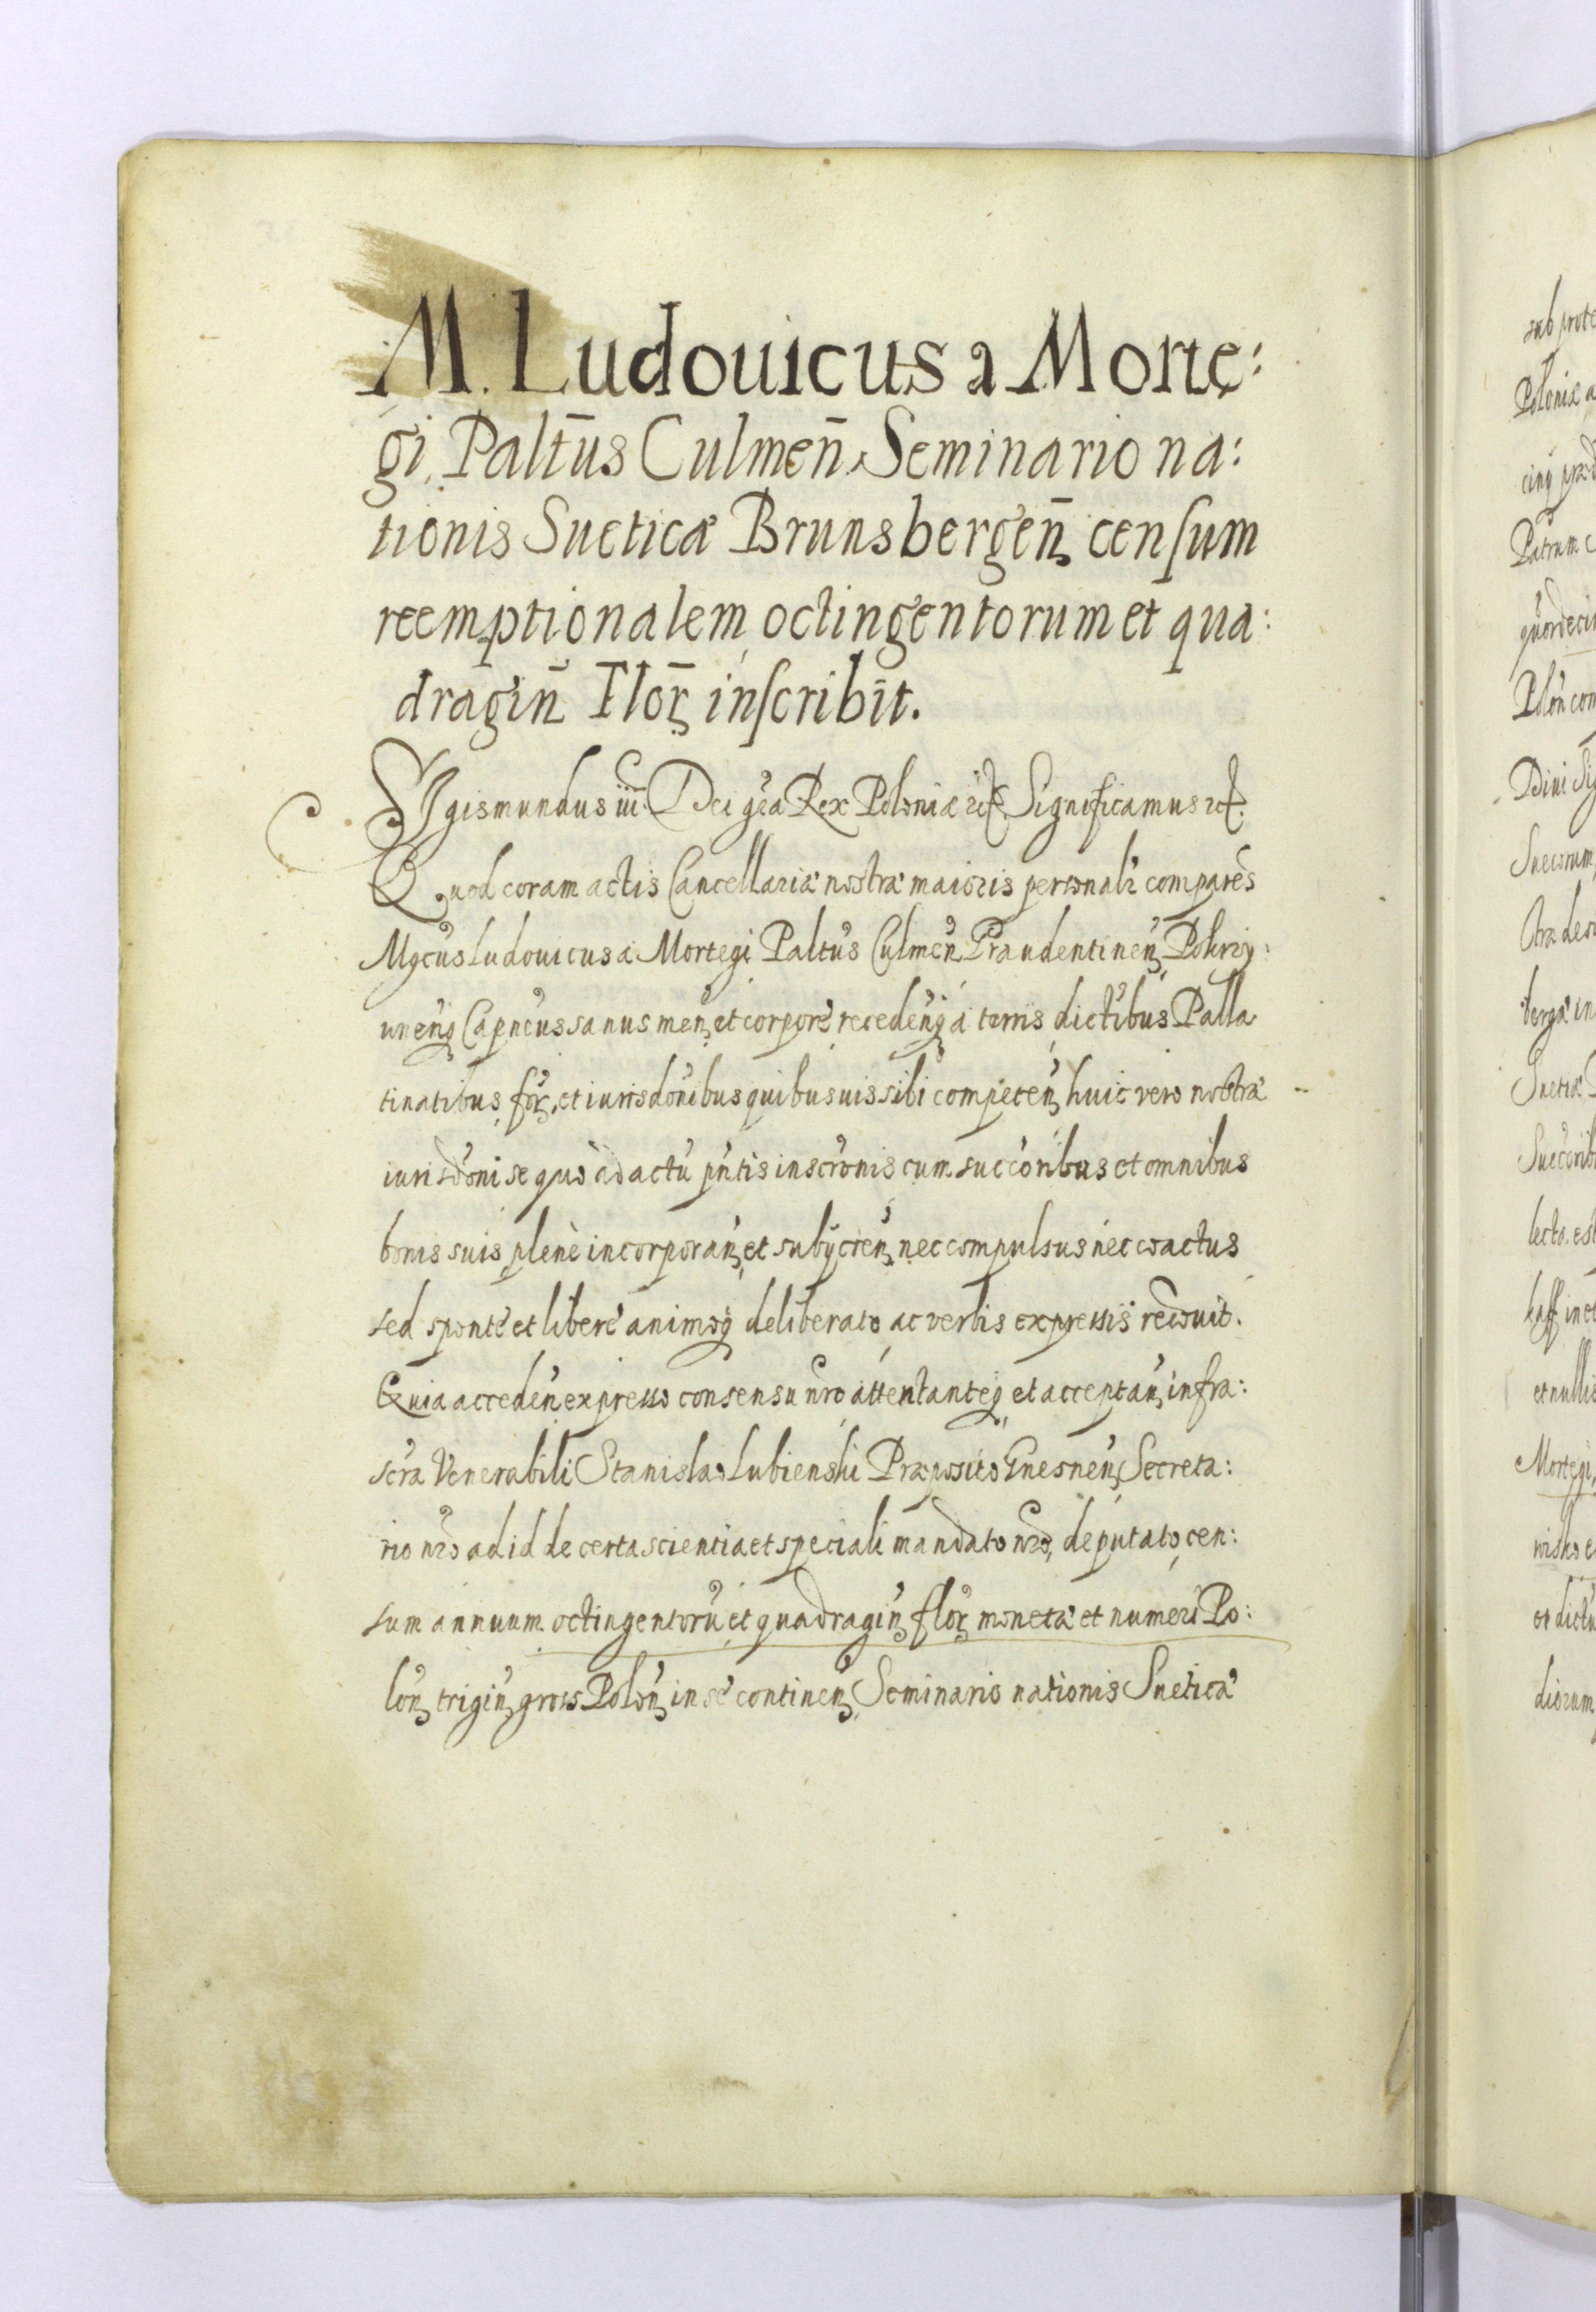 M. Ludouicus a Morte:
gi, Paltūs Culmen̄, Seminario na:
tionis Sueticæ Brunsbergen̄ censum
reemptionalem octingentorum et qua:
dragin̄ Flor̄ inscribit.
Sigismundus iii. Dei gr̃a Rex Poloniæ etc. Significamus etc.
Quod coram actis Cancellariæ nostræ maioris personalr̃ comparẽs
Mgcũs Ludouicus a Mortegi Paltũs Culmeñ Graudentineñ, Pokrzy:
wneñq Capneus sanus meñ, et corporẽ, recedeñq á terris dictĩbus Palla
tinatibus, foř, et iurisdõnibus quibusuis sibi competeñ, huic vero nostræ
iurisdõni se quò ad actũ pñtis inscrõnis cum succõribus et omnibus
bonis suis plenè incorporañ, et subÿcieñ, nec compulsus nec coactus
sed sponte et liberè animoq deliberato, ac verbis expressis recõuit.
Quia accedeñ expresso consensu nr̃o attentanteq et acceptañ, infra:
scr̃a Venerabili Stanislao Lubienski Præposito Gnesneñ, Secreta:
rio nr̃o ad id de certa scientia et speciali mandato nr̃o, deputato, cen:
sum annuum octingentorũ et quadragiñ, floř, monetæ et numeri Po:
loñ, trigiñ, gross Poloñ, in se contineñ, Seminario nationis Sueticæ
sub prote
Poloniæ a
Patrum c
Poloñ con
Diui Sig
Suecorum
bergæ in
Suetiæ
Succõrib
lecta est
et nullis
Mortegi,
diorum